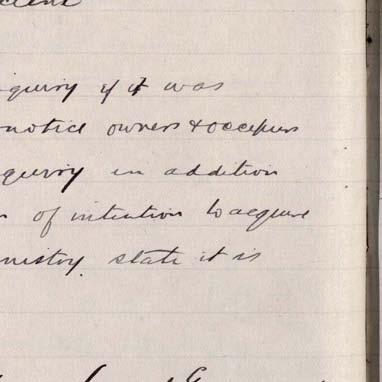 quiry if it was
notice owners & occupiers
quiry in addition
of intention to acquire
nistry state it is